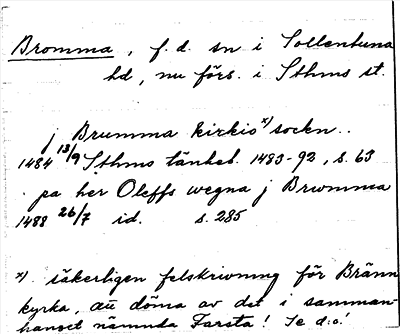 Bromma, f.d. sn i Sollentuna
hd, nu förs. i Sthms st.
j Brumma kirkio x) sockn..
1484 13/9 Sthms tänkeb. 1483-92, s. 63
pa her Oleffs wegna j Brwmma
1488 26/7 id. s. 285
x) säkerligen felskrivning för Bränn
kyrka, att döma av det i samman-
hanget nämnda Farsta! Se d.o!